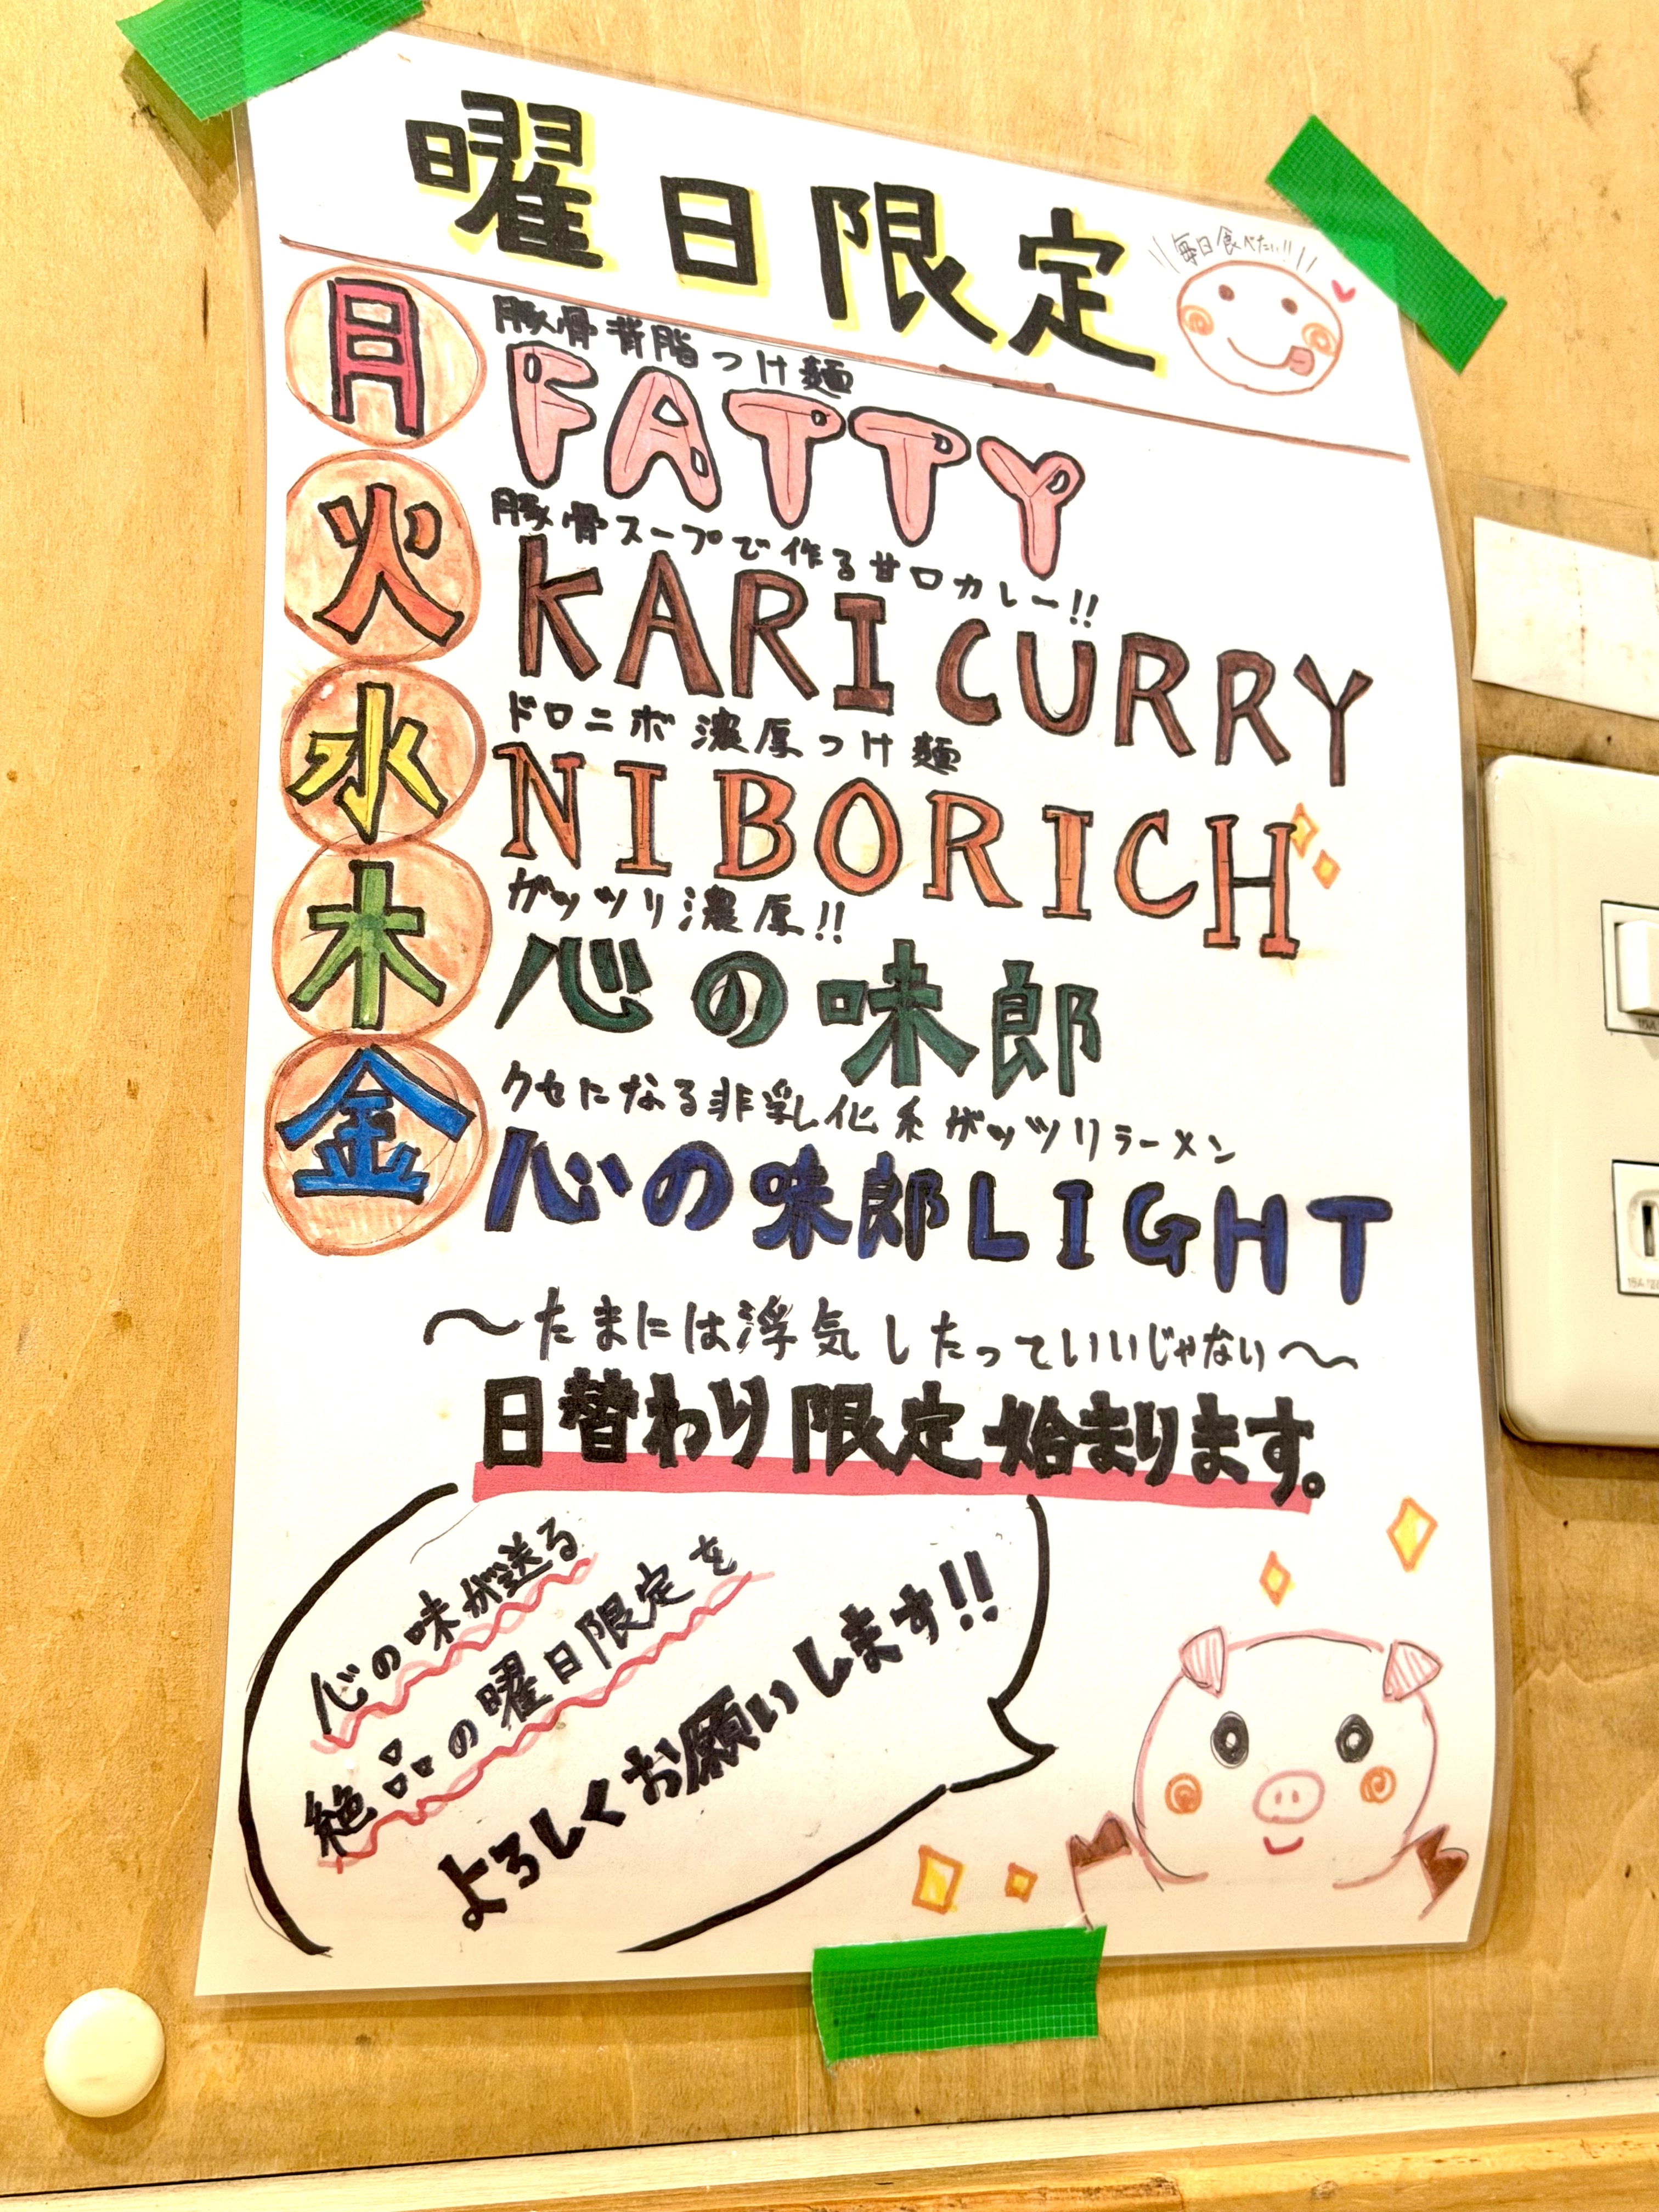 曜日限定
毎日食べたい!!
月
豚骨背脂つけ麺
FATTY
火
豚骨スープで作る甘口カレー!!
KARI CURRY
水
ドロニボ濃厚つけ麺
NIBORICH
木
ガッツリ濃厚!!
心の味郎
金
クセになる非乳化系ガッツリラーメン
心の味郎LIGHT
～たまには浮気したっていいじゃない～
日替わり限定始まります。
心の味が送る
絶品の曜日限定を
よろしくお願いします!!